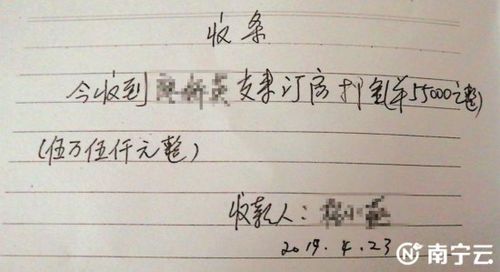 收条
今收到 支来订房押金(￥55000元整)
(伍万伍仟元整)
收款人：
2019.4.23
南宁云